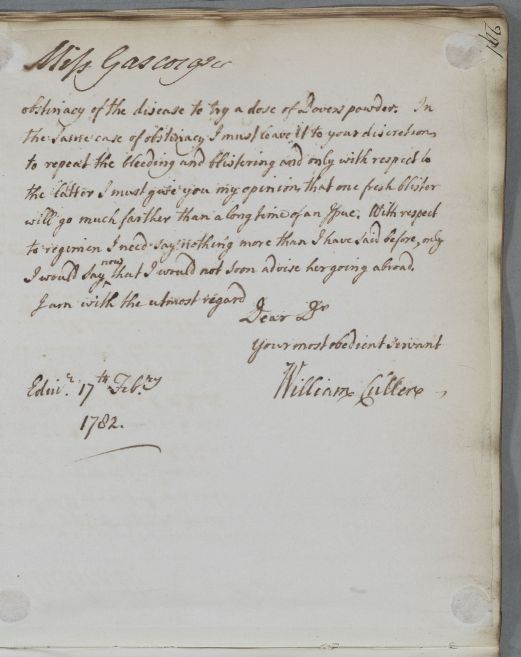 Miss Gascoigne
obstinacy of the disease to try a dose of Dovers powder. In
the same case of obstinacy I must leave it to your discretion
to repeat the bleeding and blistering and only with respect to
the latter I must give you my opinion that one fresh blister
will go much farther than a long time of an Issue. With respect
to regimen I need say nothing more than I have said before, only
I would say now that I would not soon advise her going abroad.
I am with the utmost regard
Dear Dr
your most obedient servant
Edinr. 17th Febry
William Cullen
1782.